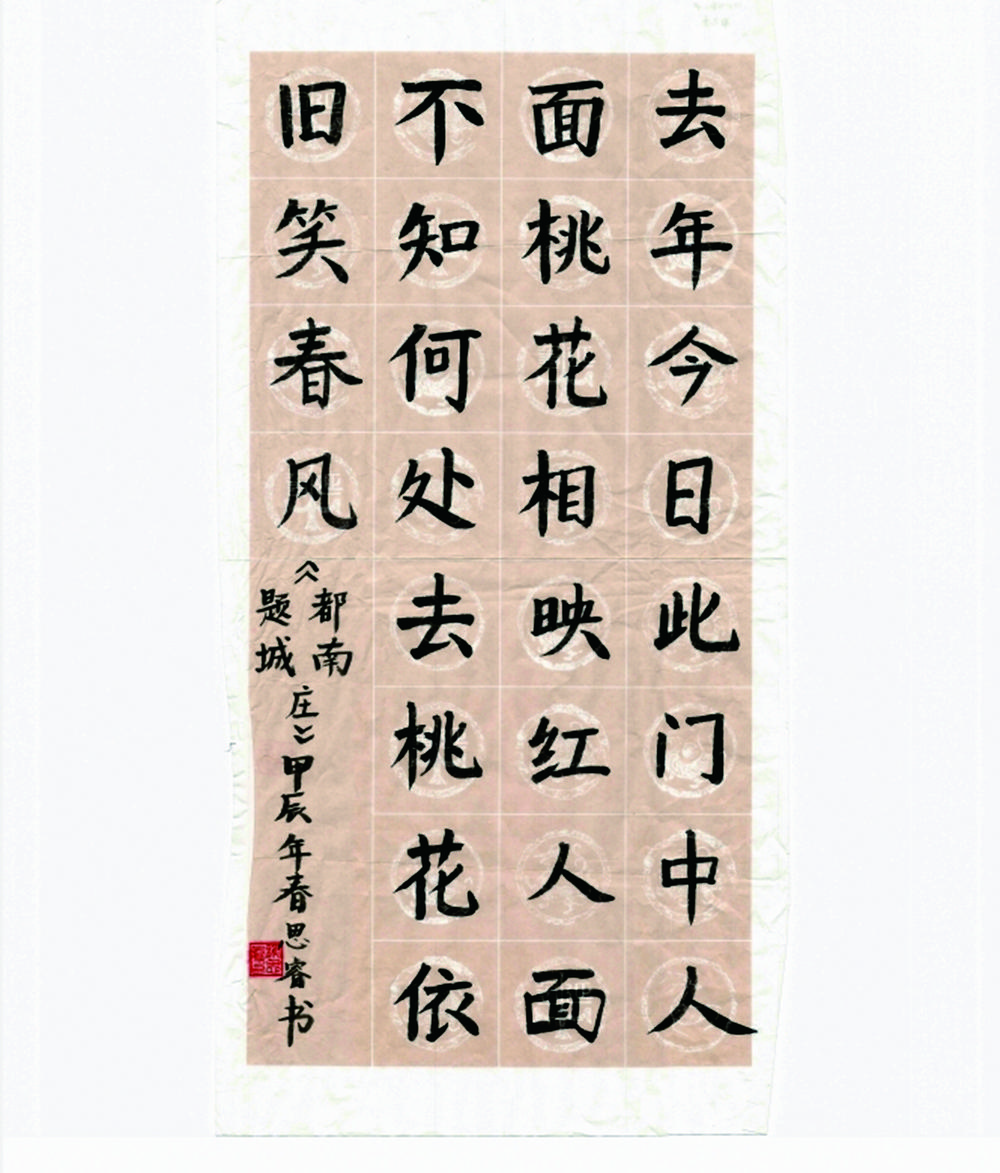 去年今日此门中人
面桃花相映红人面
不知何处去桃花依
旧笑春风
《题都城南庄》甲辰年春思睿书